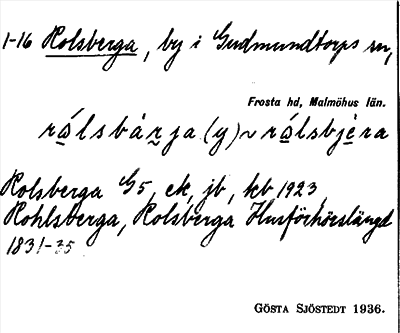 1-16 Rolsberga, by i Gudmundtorps sn,
Frosta hd, Malmöhus län.
rålsbärja (y) ~ rålsbjèra
Rolsberga G5, ek, jb, kb 1923,
Rohlsberga, Rolsberga Husförhörslängd
1831-35
GÖSTA SJÖSTEDT 1936.